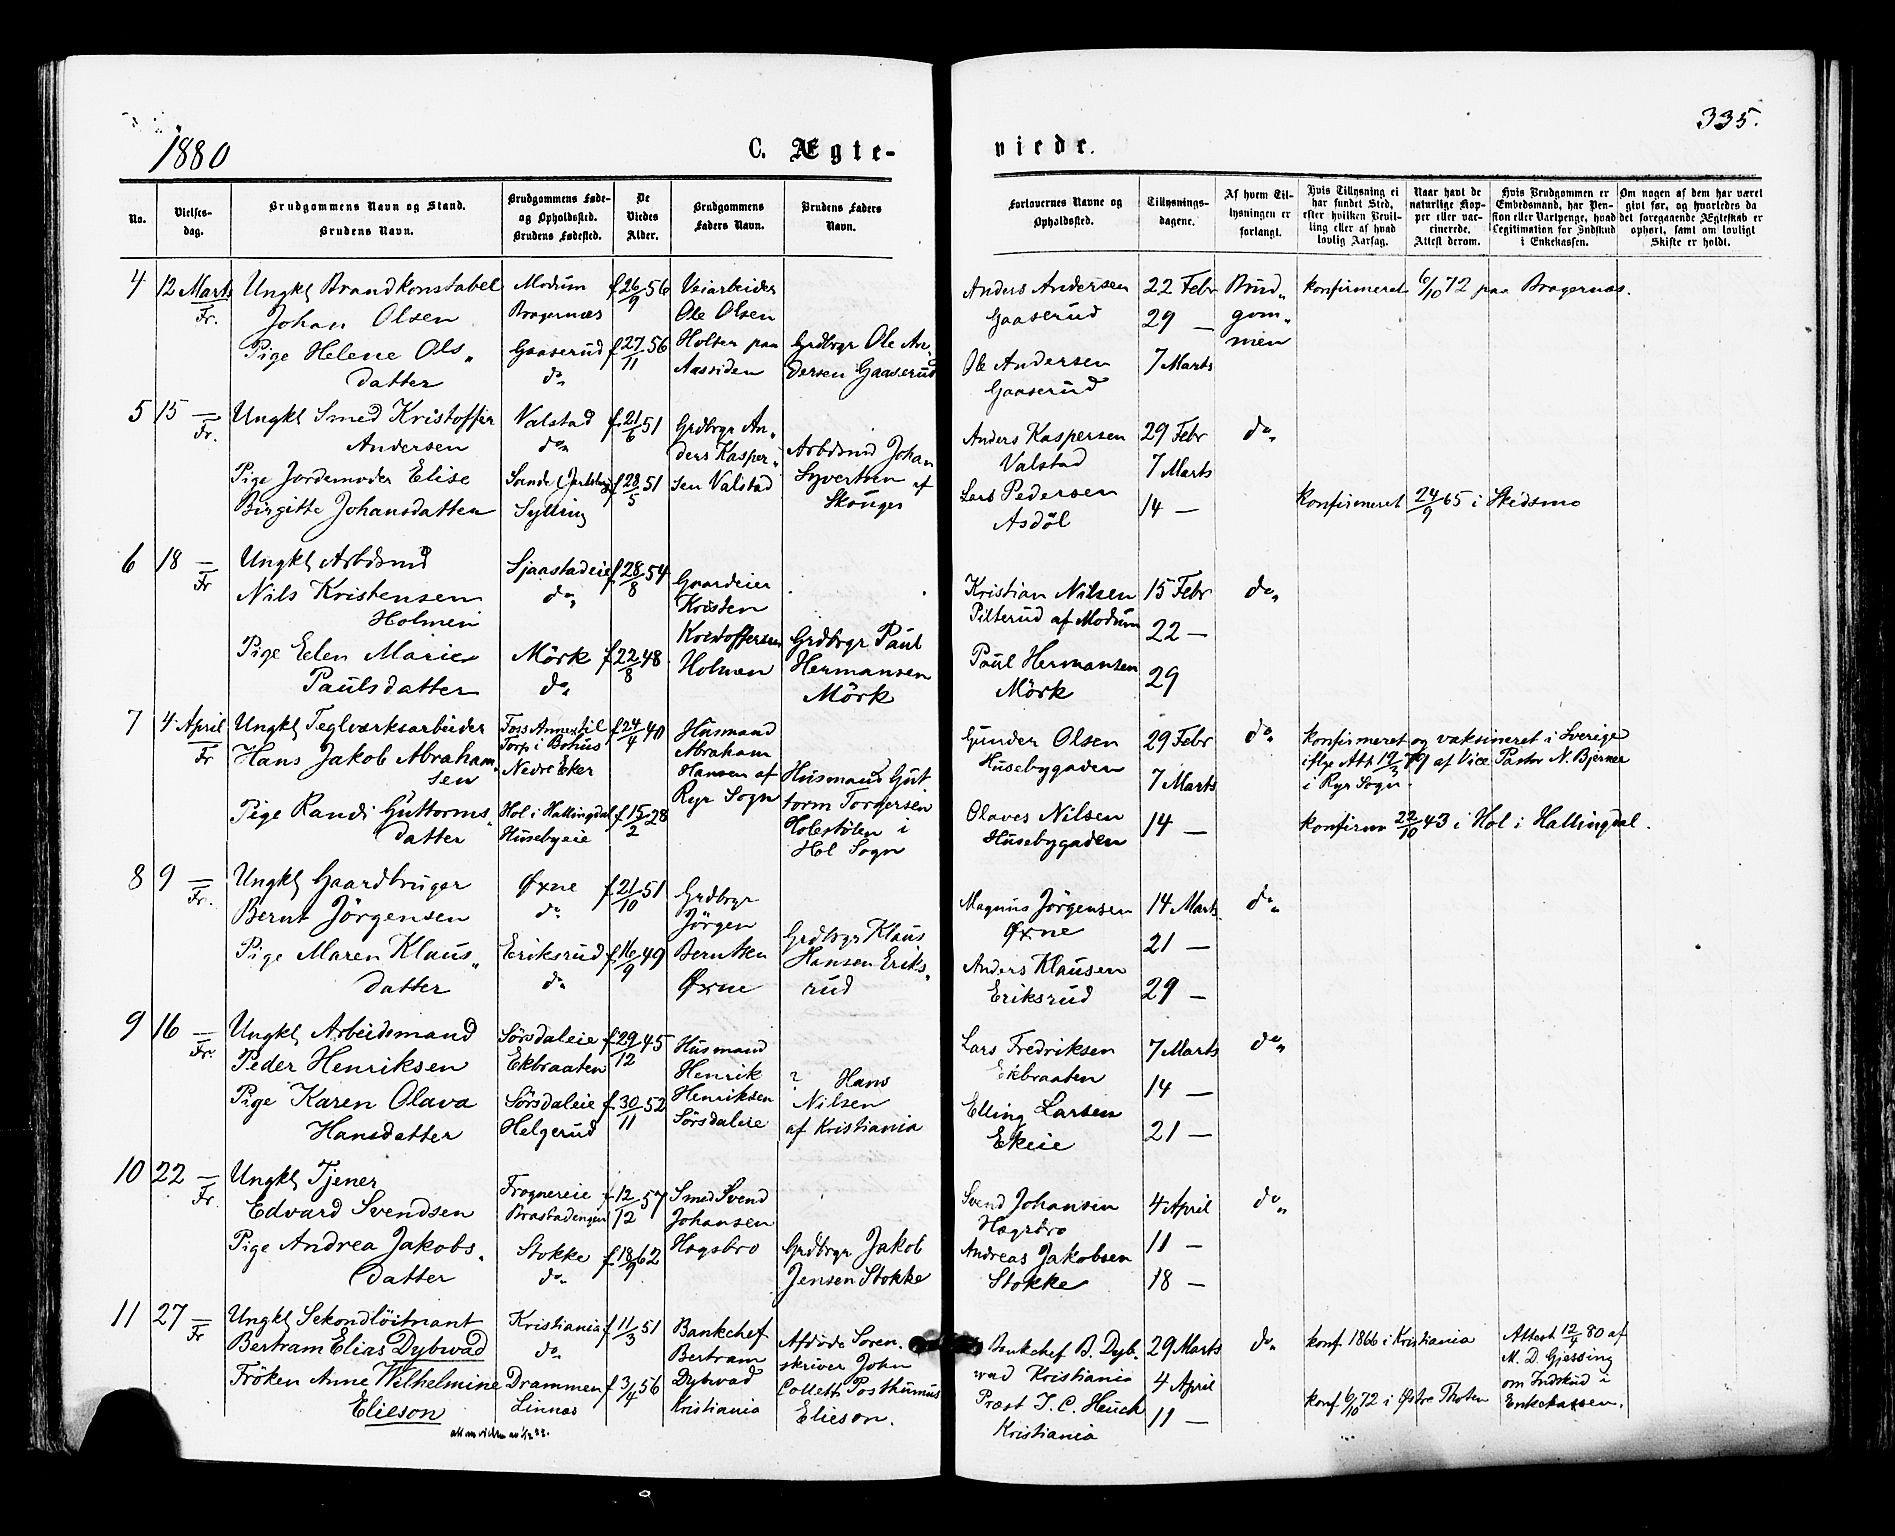 1880
335.
C. Ægte-
viede.
No.
Vielses-
dag.
Brudgommens Navn og Stand.
Brudens Navn.
Brudgommens Føde-
og Opholdssted.
Brudens Fødested.
De
Viedes
Alder.
Brudgommens
Faders Navn.
Brudens Faders
Navn.
Forlovernes Navne og
Opholdssted.
Tillysnings-
dagene.
Af hvem Til-
lysningen er
forlangt.
Hvis Tillysning ei
har fundet Sted,
efter hvilken Bevil-
ling eller af hvad
lovlig Aarsag.
Naar havt de
naturlige Kop-
per eller vac-
cinerede.
Attest derom.
Hvis Brudgommen er
Embedsmand, har Pen-
sion eller Vartpenge, hvad
Legitimation for Indskud
i Enkekassen.
Om nogen af dem har været
gift før, og hvorledes da
det foregaaende Ægteskab er
ophørt, samt om lovligt
Skifte er holdt.
4
12 Marts
Fr.
Ungkl Brandkonstabel
Johan Olsen
Pige Helene Ols„
datter
Modum
Bragernæs
Gaaserud
do„
f 26/9 56
f 27/11 56
Veiarbeider
Ole Olsen
Holter paa
Aassiden
Grdbrgr Ole An„
dersen Gaaserud
Anders Andersen
Gaaserud
Ole Andersen
Gaaserud
22 Febr
29 —
7 Marts
Brud„
gom„
men
konfirmeret 6/10 72 paa Bragernæs.
5
15 —
Fr.
Ungkl Smed Kristoffer
Andersen
Pige Jordemoder Elise
Birgitte Johansdatter
Valstad
do„
Sande (Jarlsberg
Sylling
f 21/6 51
f 28/5 51
Grdbrgr An„
ders Kasper„
sen Valstad
Arbdsmd Johan
Syvertsen af
Skouger
Anders Kaspersen
Valstad
Lars Pedersen
Asdöl
29 Febr
7 Marts
14 —
do„
Konfirmeret 24/9 65 i Skedsmo
6
18 —
Fr
Ungkl Arbdsmd
Nils Kristensen
Holmen
Pige Eelen Marie
Paulsdatter
Sjaastadeie
do„
Mörk
do„
f 28/8 54
f 22/8 48
Gaardeier
Kristen
Kristoffersen
Holmen
Grdbrgr Paul
Hermansen
Mörk
Kristian Nilsen
Pilterud af Modum
Paul Hermansen
Mörk
15 Febr
22 —
29
do„
7
4 April
Fr
Ungkl Teglværksarbeider
Hans Jakob Abraham„
sen
Pige Randi Guttorms„
datter
Foss Annex til
Torp i Bohus
Nedre Eker
Hol i Hallingdal
Husebyeie
f 24/4 40
f 15/2 28
Husmand
Abraham
Hansen af
Ryr Sogn
Husmand Gut
torm Torgersen
Holestölen i
Hol Sogn
Gunder Olsen
Husebygaden
Olaves Nilsen
Husebygaden
29 Febr
7 Marts
14 —
do„
konfirmeret og vaksineret i Sverige
iflge Att 19/3 79 af Vice Pastor N. Bjerner
i Ryr Sogn.
konfirm 22/10 43 i Hol i Hallingdal.
8
9 —
Fr.
Ungkl Gaardbruger
Bernt Jörgensen
Pige Maren Klaus„
datter
Øxne
do„
Eriksrud
do„
f 21/10 51
f 16/9 49
Grdbrgr
Jörgen
Berntsen
Øxne
Grdbrgr Klaus
Hansen Eriks„
rud
Magnus Jörgensen
Øxne
Anders Klausen
Eriksrud
14 Marts
21 —
29 —
do„
9
16 —
Fr.
Ungkl Arbeidsmand
Peder Henriksen
Pige Karen Olava
Hansdatter
Sörsdaleie
Ekbraaten
Sörsdaleie
Helgerud
f 29/12 45
f 30/11 52
Husmand
Henrik
Henriksen
Sörsdaleie
? Hans
Nilsen
af Kristiania
Lars Fredriksen
Ekbraaten
Elling Larsen
Ekeie
7 Marts
14 —
21 —
do„
10
22 —
Fr
Ungkl Tjener
Edvard Svendsen
Pige Andrea Jakobs„
datter
Frognereie
Brastadengen
Stokke
do„
f 12/12 57
f 18/9 62
Smed Svend
Johansen
Hagsbro
Grdbrgr Jakob
Jensen Stokke
Svend Johansen
Hagsbro
Andreas Jakobsen
Stokke
4 April
11 —
18 —
do„
11
27 —
Fr
Ungkl Sekondlöitnant
Bertram Elias Dybwad
Fröken Anne Wilhelmine
Elieson
Kristiania
do„
Drammen
Linnæs
f 11/3 51
f 3/4 56
Bankchef
Bertram
Dybwad
Kristiania
Afdöde Soren„
skriver John
Collett Posthumus
Elieson.
Bankchef B. Dyb„
wad Kristiania
Præst J. C. Heuch
Kristiania
29 Marts
4 April
11 —
do„
konf. 1866 i Kristiania
konf 6/10 72 i Østre Thoten
Attest 12/4 80 af
M. D. Gjessing
om Indskud i
Enkekassen.